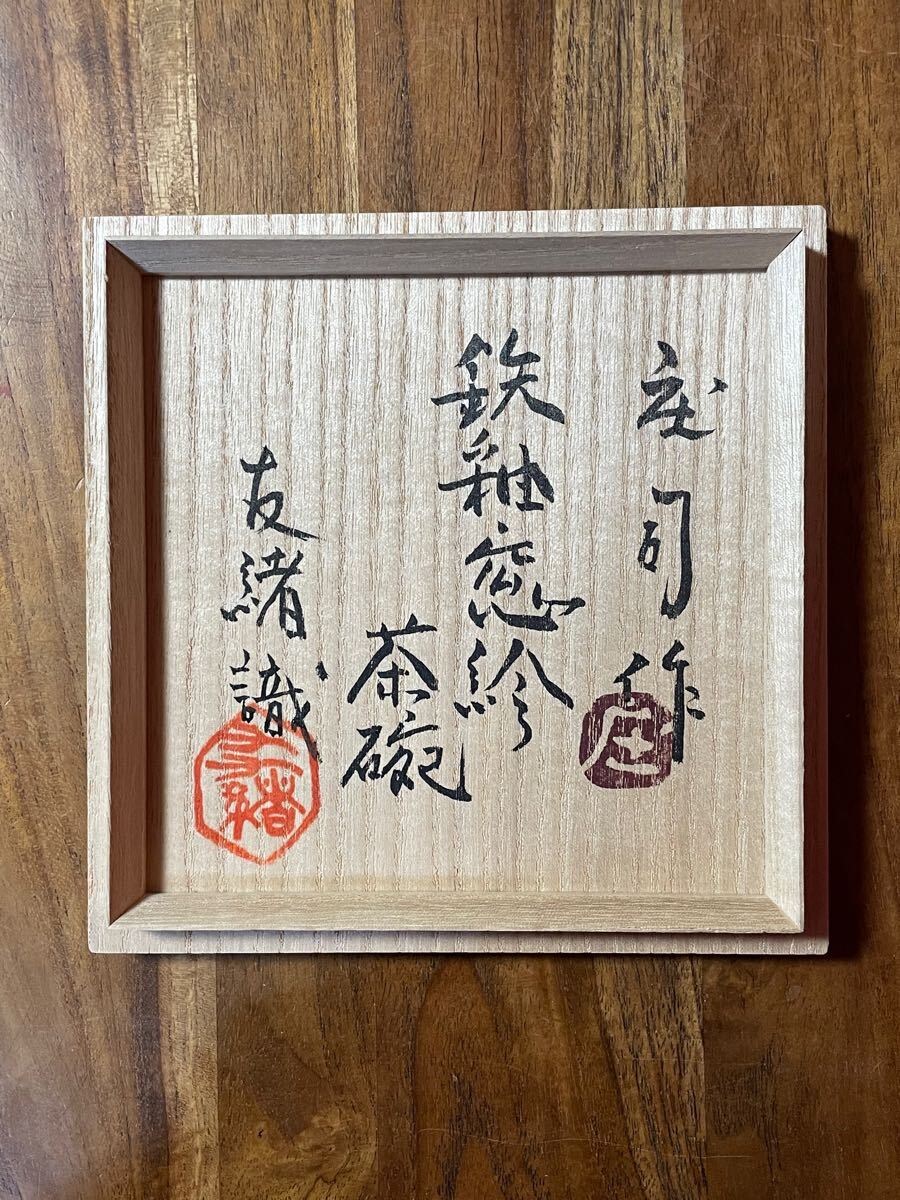 庄司作
鉄釉窓絵
茶碗
友緒識
庄